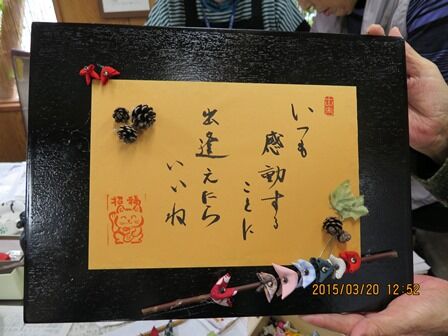 いつも
感動する
ことに
出逢えたら
いいね
招福
2015/03/20 12:52